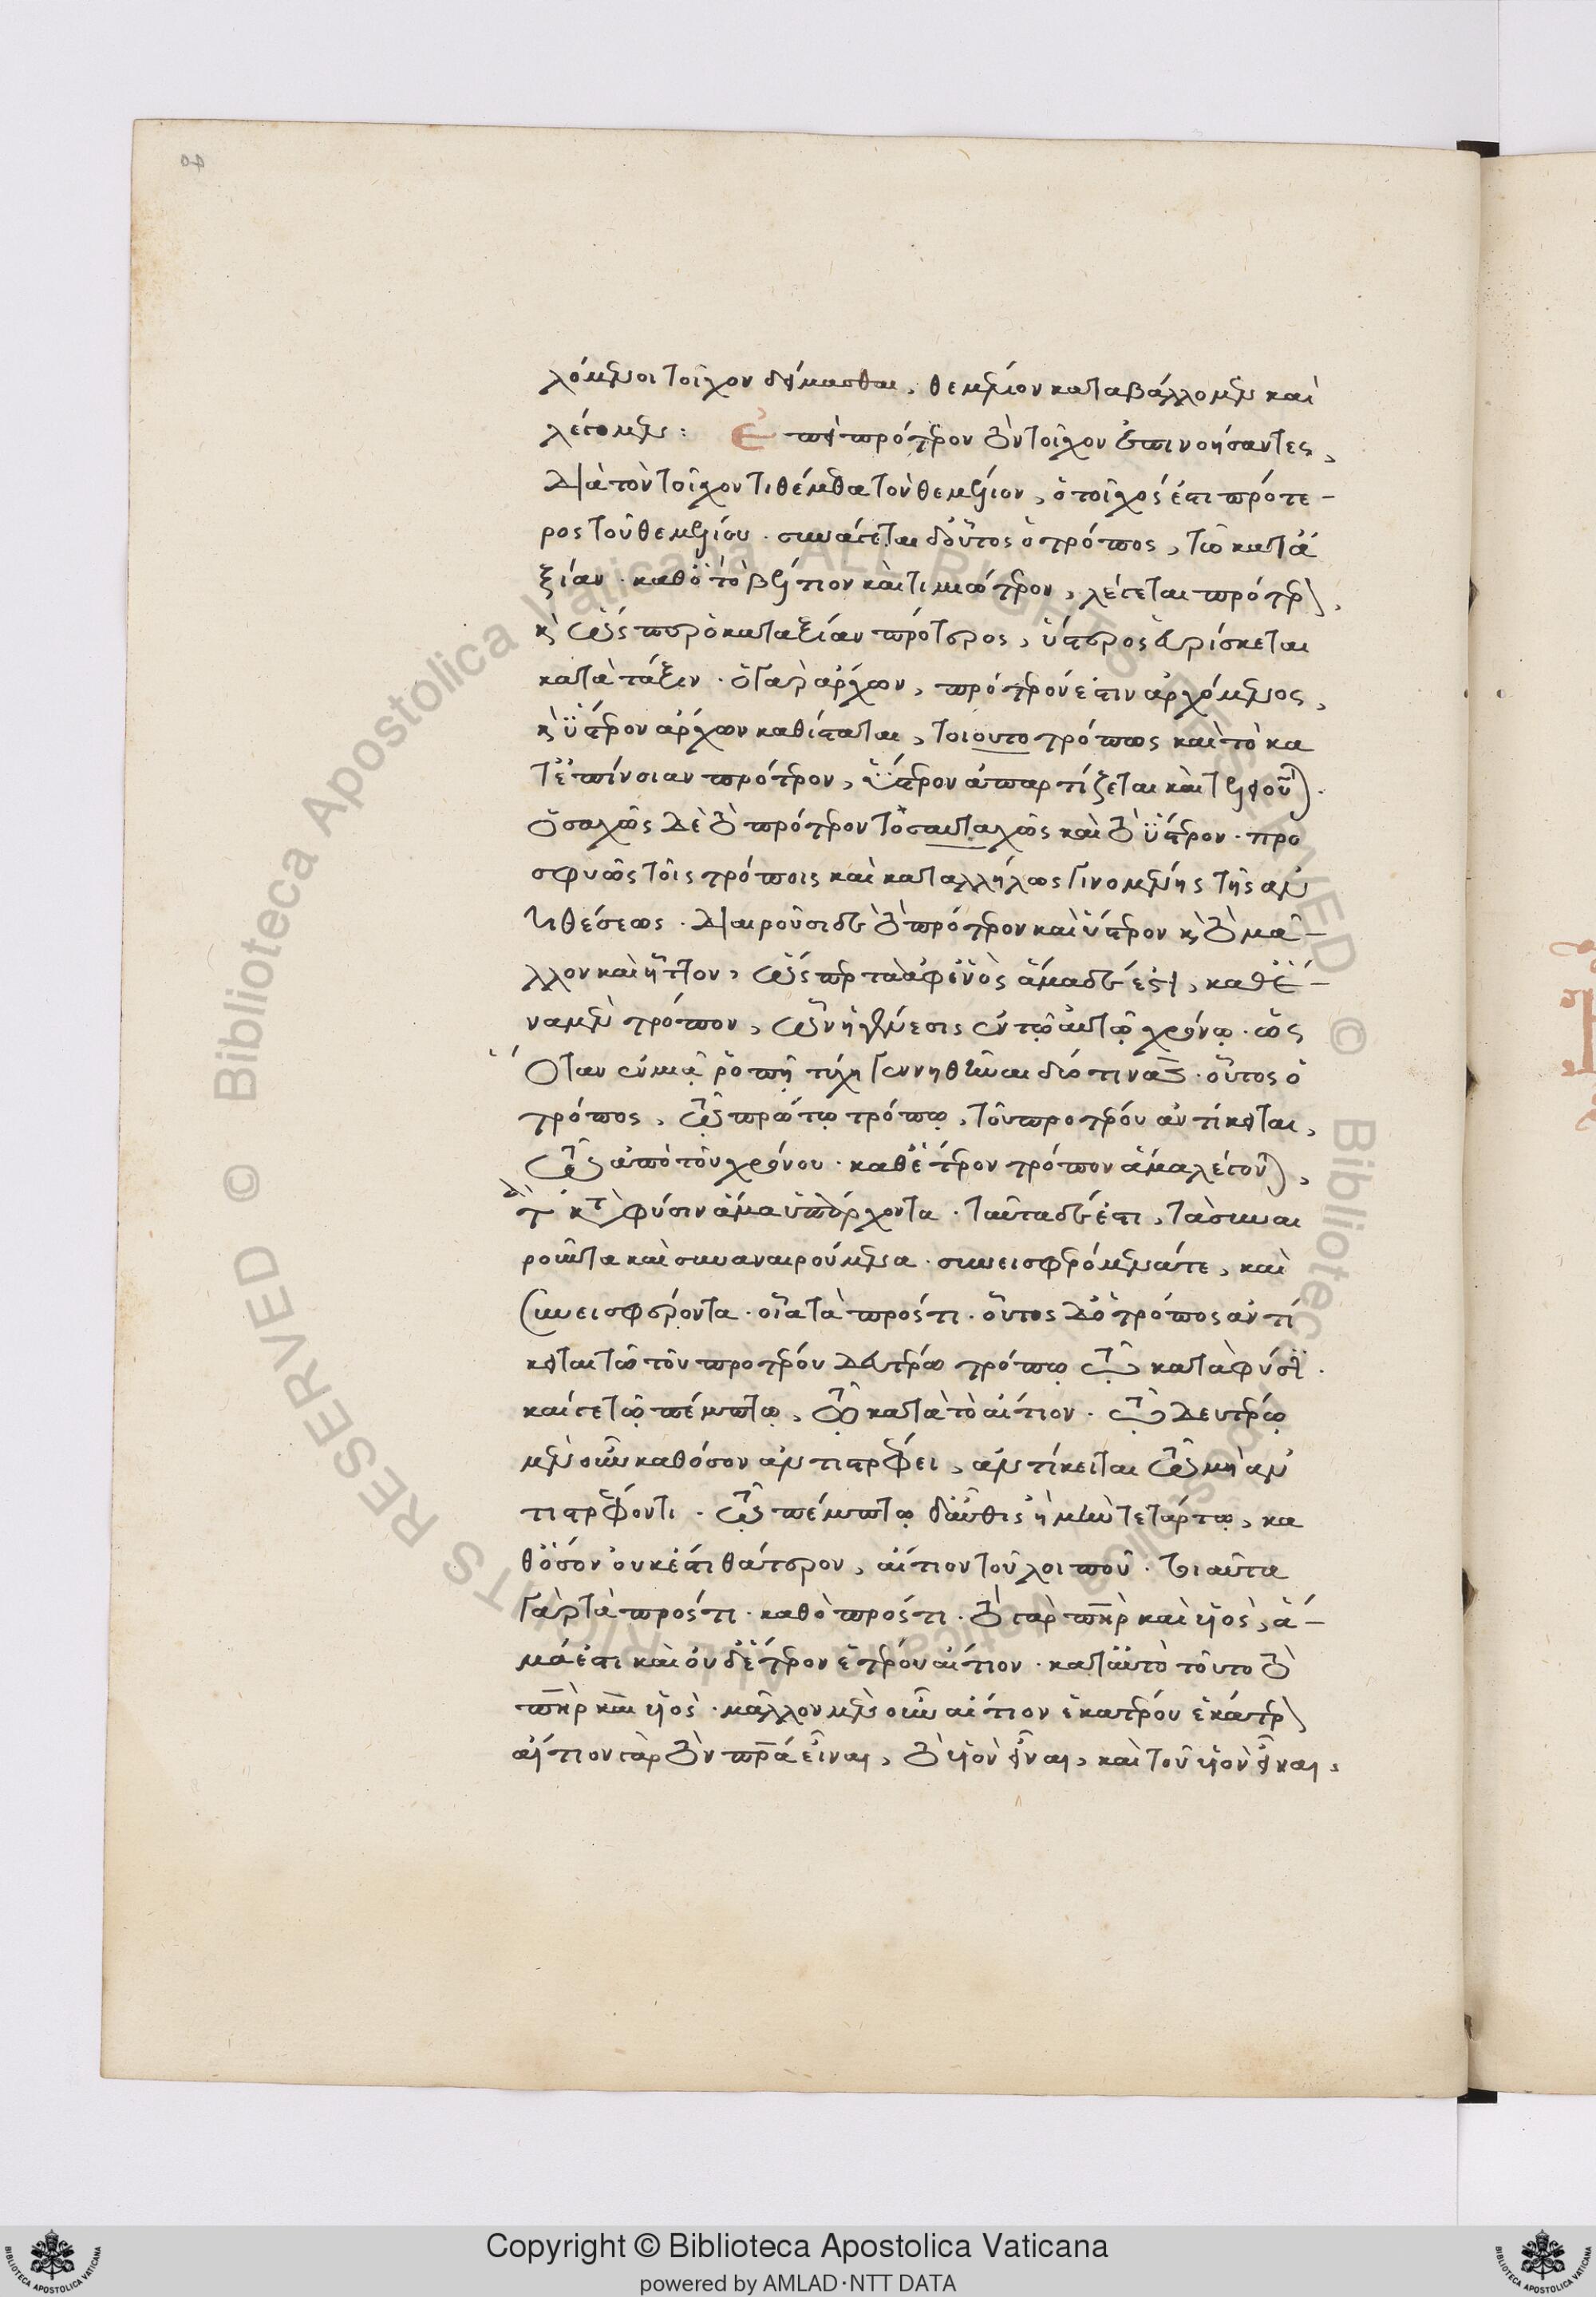 40
λόμενοι τοῖχον δείμασθαι, θεμέλιον καταβάλλομεν καὶ
λέγομεν: Ἐπεὶ πρότερον τὸν τοῖχον ἐπινοήσαντες,
διὰ τὸν τοῖχον τιθέμεθα τὸν θεμέλιον, ὁ τοῖχός ἐστι πρότε-
ρος τοῦ θεμελίου. συνάγεται δ' οὗτος ὁ τρόπος, τῷ κατ' ἀ
ξίαν. καθὸ τὸ βέλτιον καὶ τιμιώτερον, λέγεται πρότερον,
καὶ ὥσπερ ὁ κατ' ἀξίαν πρότερος, ὕστερος εὑρίσκεται
κατὰ τάξιν. ὁ γὰρ ἄρχων, πρότερόν ἐστιν ἀρχόμενος,
καὶ ὕστερον ἄρχων καθίσταται, τοιουτοτρόπως καὶ τὸ κα
τ' ἐπίνοιαν πρότερον, ὕστερον ἀπαρτίζεται καὶ τελειοῦται.
ὁσαχῶς δὲ τὸ πρότερον τοσαυταχῶς καὶ τὸ ὕστερον. προ
σφυῶς τοῖς τρόποις καὶ καταλλήλως γινομένης τῆς ἀν
τιθέσεως. διαιροῦσι δὲ τὸ πρότερον καὶ ὕστερον καὶ τὸ μᾶ-
λλον καὶ ἧττον, ὥσπερ τὰ ἀφ' ἑνὸς ἅμα δέ ἐστι, καθ' ἕ-
να μὲν τρόπον, ὧν ἡ γένεσις ἐν τῷ αὐτῷ χρόνῳ. ὡς
ὅταν ἐν μιᾷ ῥοπῇ τύχῃ γεννηθῆναι δύο τινάς. οὗτος ὁ
τρόπος, τῷ πρώτῳ τρόπῳ, τοῦ προτέρου ἀντίκειται,
τῷ ἀπὸ τοῦ χρόνου. καθ' ἕτερον τρόπον ἅμα λέγονται,
τὰ κατὰ φύσιν ἅμα ὑπάρχοντα. ταῦτα δέ ἐστι, τὰ συναι
ροῦντα καὶ συναναιρούμενα. συνεισφερόμενά τε, καὶ
συνεισφέροντα. οἷα τὰ πρός τι. οὗτος δ' ὁ τρόπος ἀντί
κειται τῷ τοῦ προτέρου δευτέρῳ τρόπῳ τῷ κατὰ φύσιν.
καί γε τῷ πέμπτῳ, τῷ κατὰ τὸ αἴτιον. τῷ δευτέρῳ
μὲν οὖν καθόσον ἀντιστρέφει, ἀντίκειται τῷ μὴ ἀν
τιστρέφοντι. τῷ πέμπτῳ δ' αὖθις ἢ μὴν τετάρτῳ, κα
θόσον οὐκ ἔστι θάτερον, αἴτιον τοῦ λοιποῦ. τοιαῦτα
γὰρ τὰ πρός τι. καθὸ πρός τι. τὸ γὰρ πηρ καὶ υἱὸς, ἅ-
μά ἐστι καὶ οὐδ' ἕτερον ἑτέρου αἴτιον. κατ' αὐτὸ τοῦτο τὸ
πηρ καὶ υἱὸς. μᾶλλον μὲν οὖν αἴτιον ἑκατέρου ἑκάτερον
αἴτιον γὰρ τὸν πρα εἶναι, τὸ υἱὸν εἶναι, καὶ τοῦ υἱὸν εἶναι,
Copyright © Biblioteca Apostolica Vaticana
powered by AMLAD·NTT DATA